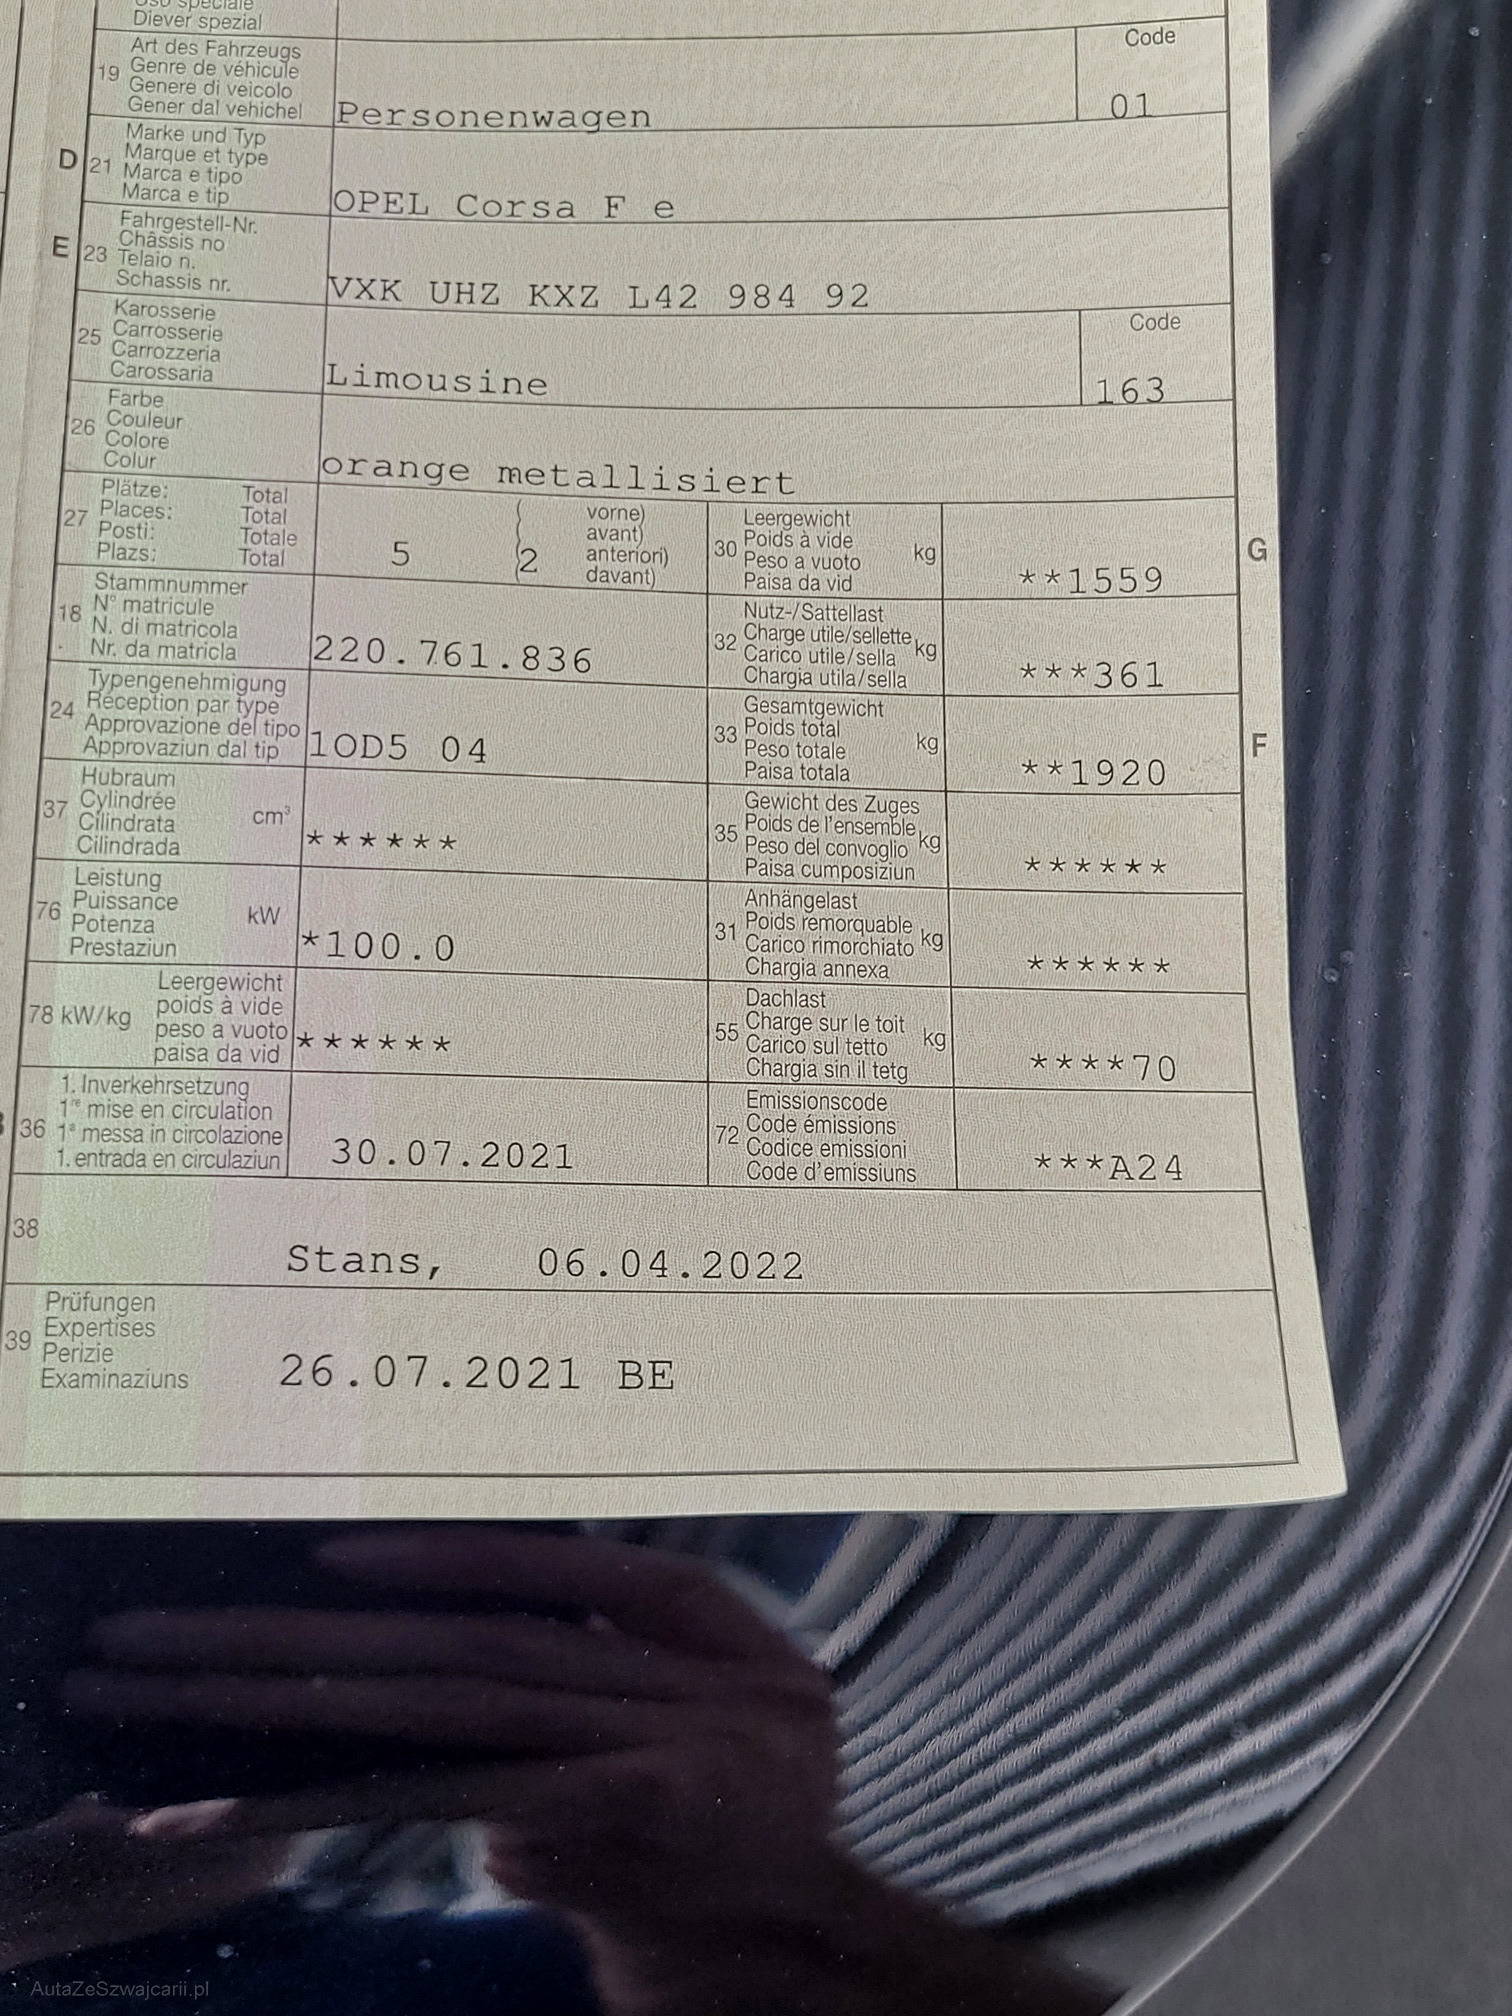 Uso speciale
Diever spezial
19 Art des Fahrzeugs
Genre de véhicule
Genere di veicolo
Gener dal vehichel
Personenwagen
Code
01
D 21 Marke und Typ
Marque et type
Marca e tipo
Marca e tip
OPEL Corsa F e
E 23 Fahrgestell-Nr.
Châssis no
Telaio n.
Schassis nr.
VXK UHZ KXZ L42 984 92
25 Karosserie
Carrosserie
Carrozzeria
Carossaria
Limousine
Code
163
26 Farbe
Couleur
Colore
Colur
orange metallisiert
27 Plätze: Total
Places: Total
Posti: Totale
Plazs: Total
5 2
vorne)
avant)
anteriori)
davant)
30 Leergewicht
Poids à vide
Peso a vuoto
Paisa da vid
kg
**1559
G
18 Stammnummer
N° matricule
N. di matricola
Nr. da matricla
220.761.836
32 Nutz-/Sattellast
Charge utile/sellette
Carico utile/sella
Chargia utila/sella
kg
***361
24 Typengenehmigung
Réception par type
Approvazione del tipo
Approvaziun dal tip
1OD5 04
33 Gesamtgewicht
Poids total
Peso totale
Paisa totala
kg
**1920
F
37 Hubraum
Cylindrée
Cilindrata
Cilindrada
cm³
******
35 Gewicht des Zuges
Poids de l'ensemble
Peso del convoglio
Paisa cumposiziun
kg
******
76 Leistung
Puissance
Potenza
Prestaziun
kW
*100.0
31 Anhängelast
Poids remorquable
Carico rimorchiato
Chargia annexa
kg
******
78 kW/kg
Leergewicht
poids à vide
peso a vuoto
paisa da vid
******
55 Dachlast
Charge sur le toit
Carico sul tetto
Chargia sin il tetg
kg
****70
36 1. Inverkehrsetzung
1re mise en circulation
1a messa in circolazione
1. entrada en circulaziun
30.07.2021
72 Emissionscode
Code émissions
Codice emissioni
Code d'emissiuns
***A24
38
Stans, 06.04.2022
39 Prüfungen
Expertises
Perizie
Examinaziuns
26.07.2021 BE
AutaZeSzwajcarii.pl